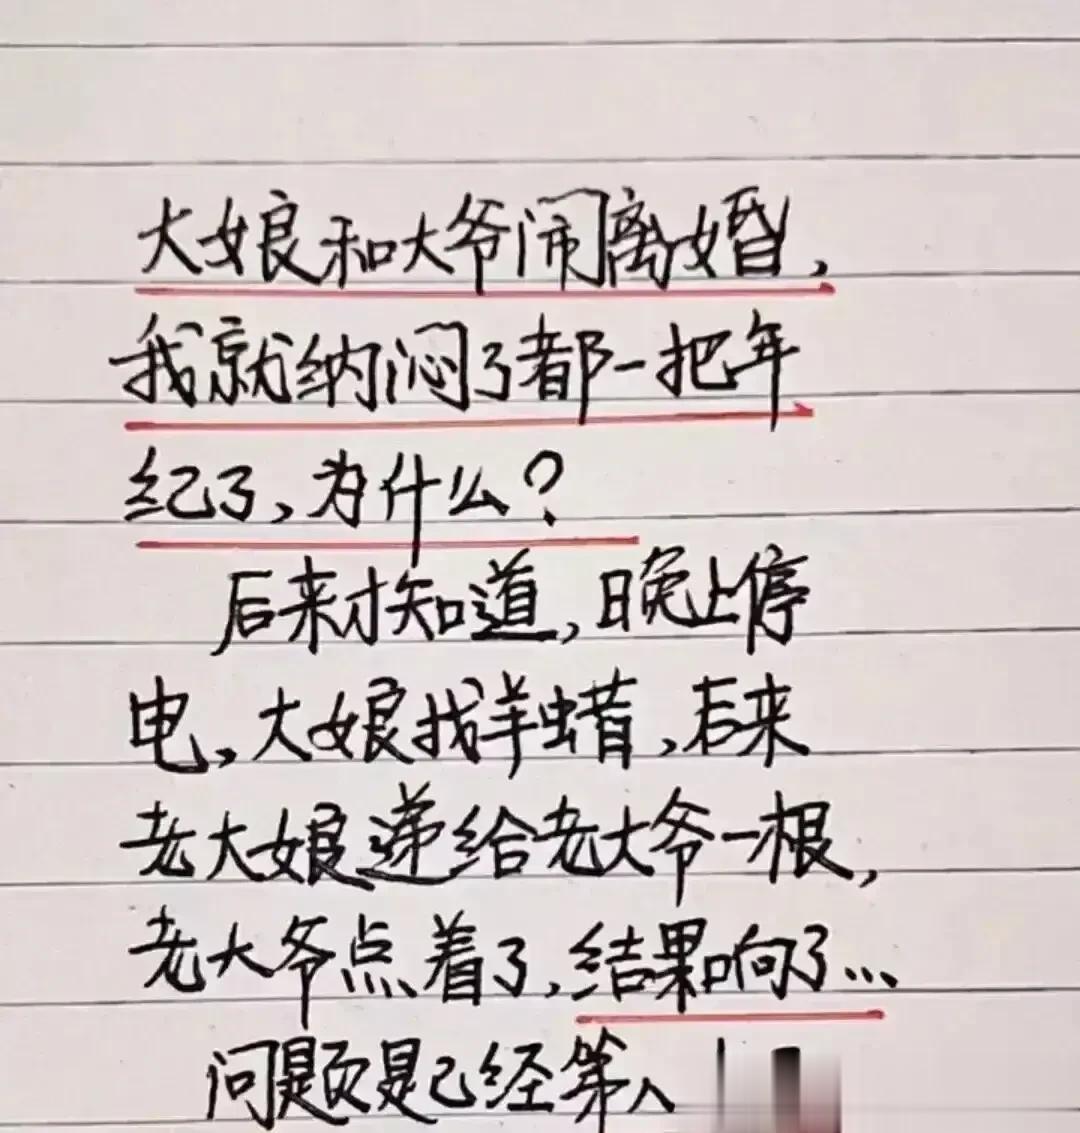 大娘和大爷闹离婚，
我就纳闷了都一把年
纪了，为什么？
后来才知道，晚上停
电，大娘找羊蜡，后来
老大娘递给老大爷一根，
老大爷点着了，结果响了…
问题是已经第八